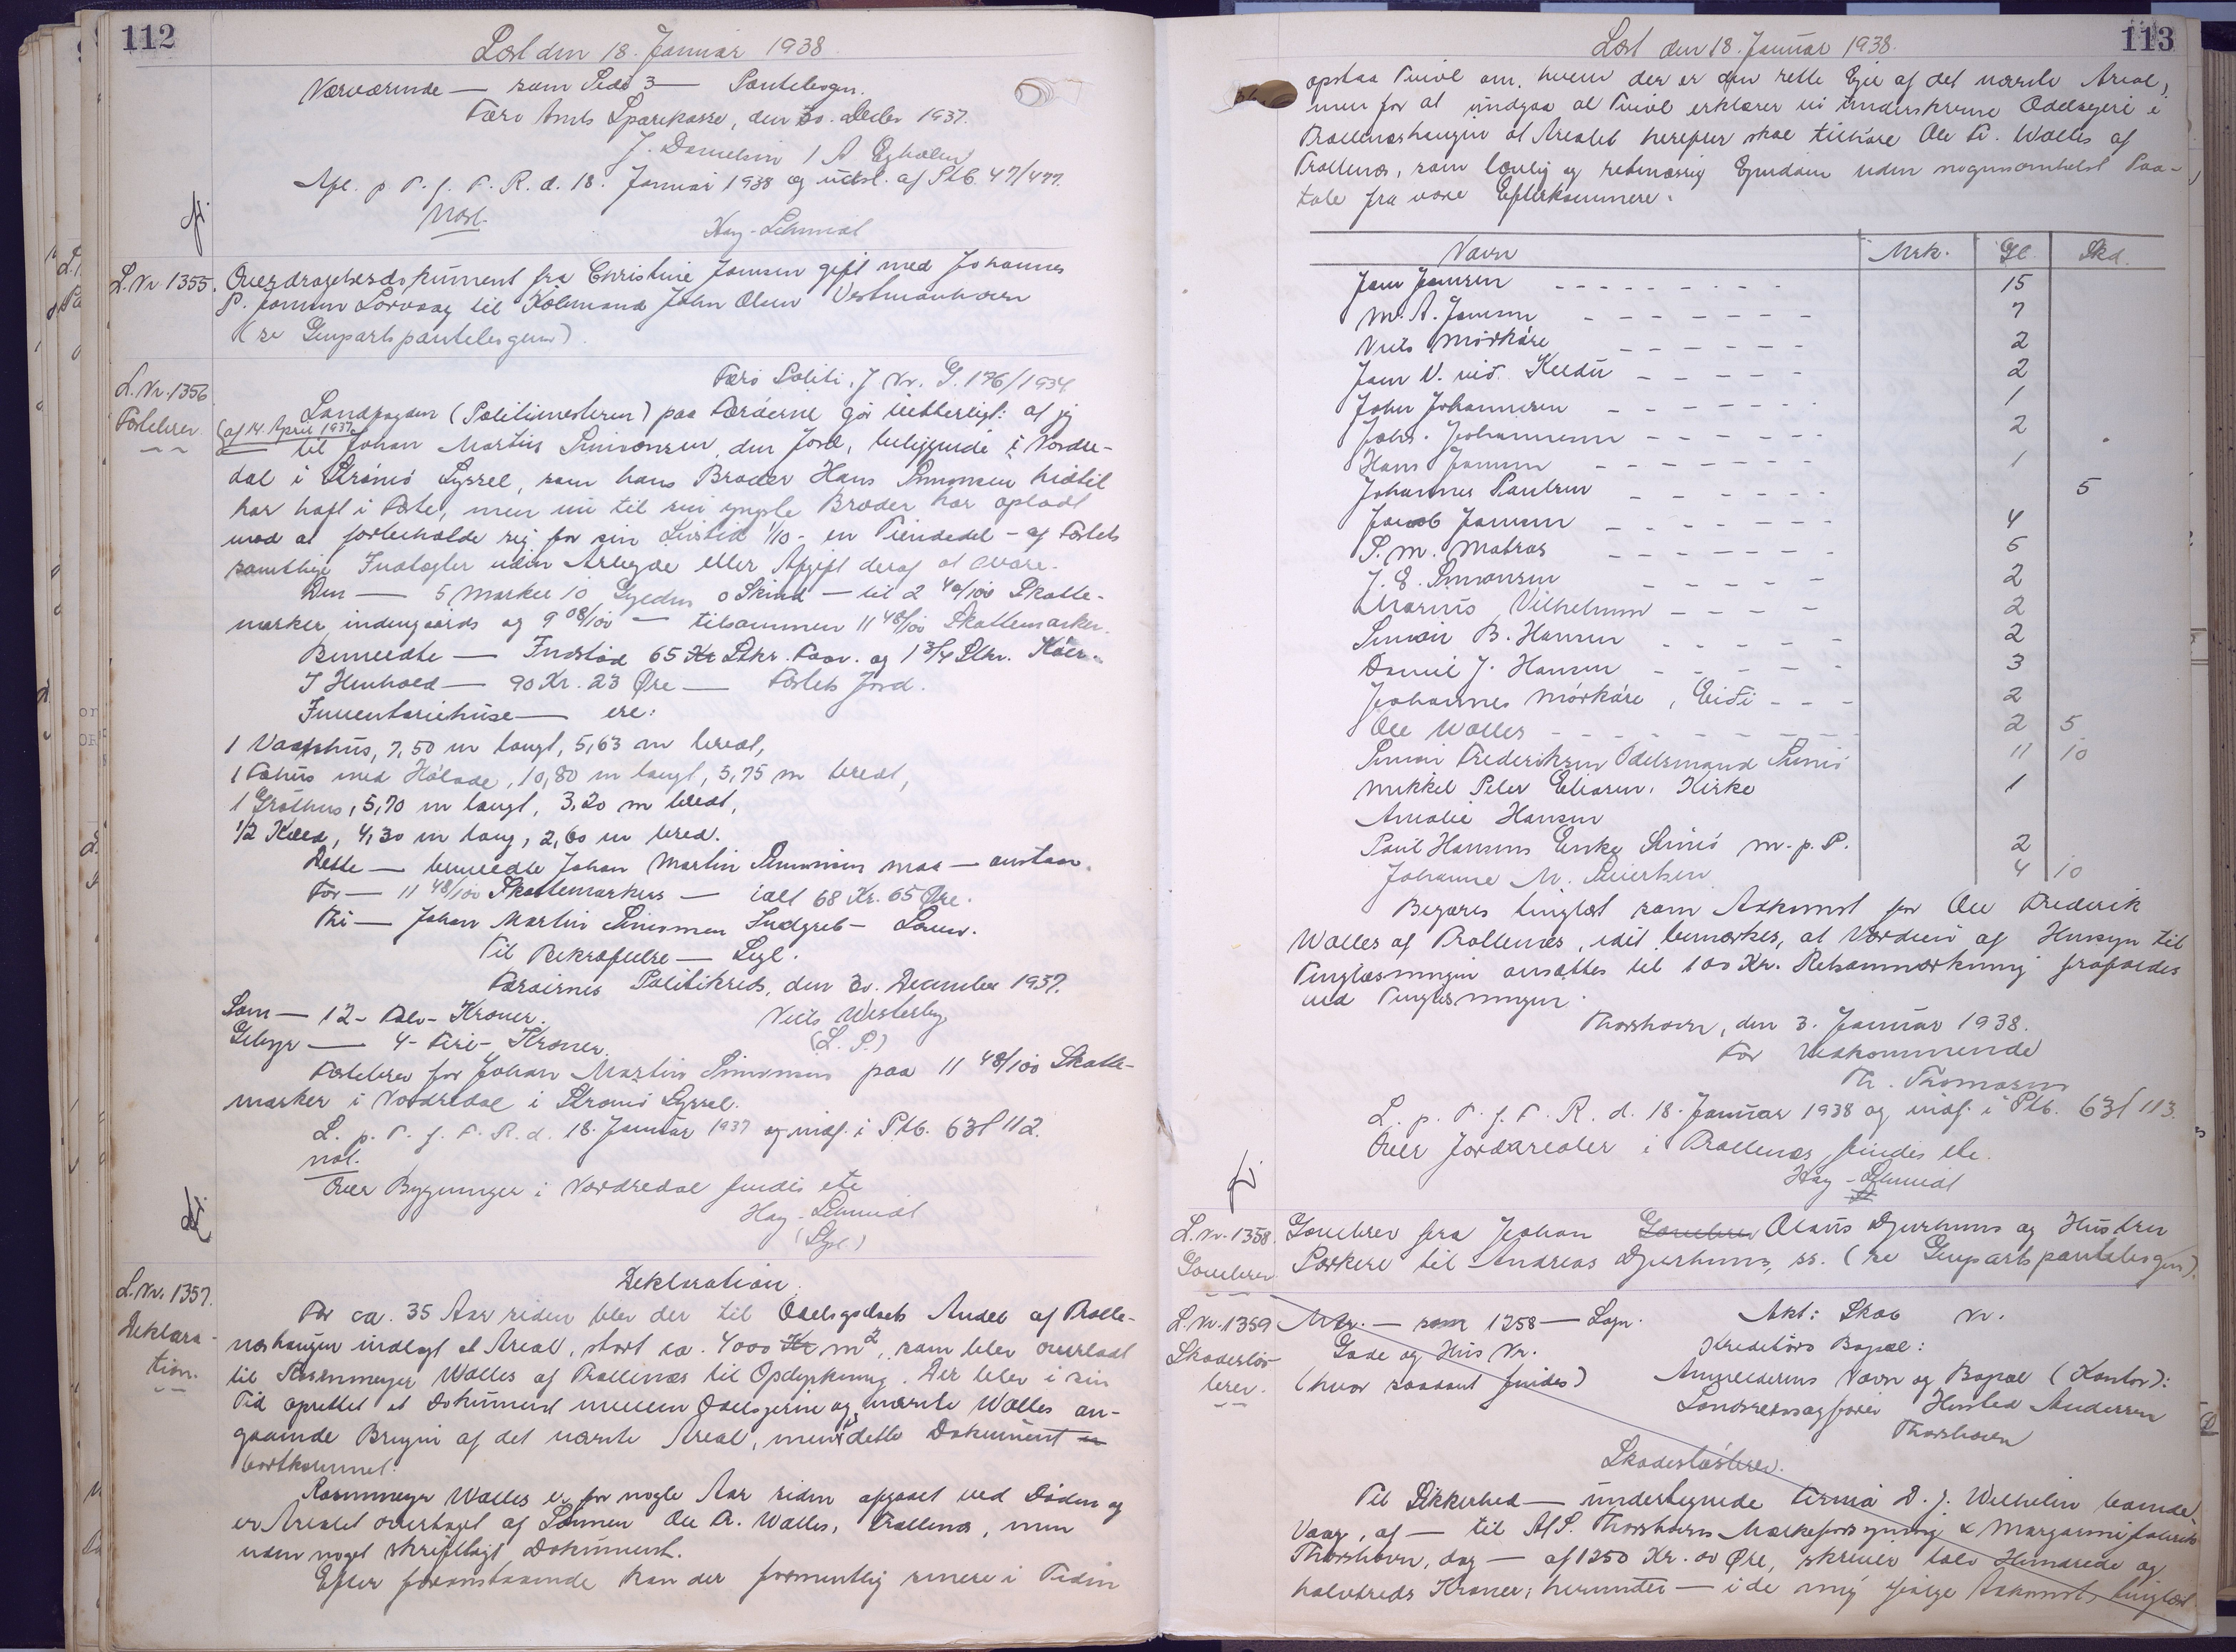 112
Læst den 18. Januar 1938
Nærværende — som Side 3 — Pantebogen.
Færø Amts Sparekasse, den 30. Decbr 1937.
J. Danielsen / A. Egholm
Afl. p T. f. F. R. d. 18. Januar 1938 og udsl. af Ptb. 47/477.
Kay-Schmidt
L. Nr 1355. Overdragelsesdokument fra Christine Joensen gift med Johannes
P. Joensen Sørvaag til Købmand John Olsen Vestmanhavn
(se Genpartspantebogen).
L. Nr. 1356
Fæstebrev
Færø Politi, J. Nr. G. 176/1934
Landfogden (Politimesteren) paa Færøerne gør vitterligt: at jeg
(af 14. April 1937)
til Johan Martin Simonsen, den Jord, beliggende i Nordre-
dal i Strømø Syssel, som hans Broder Hans Simonsen hidtil
har haft i Fæste, men nu til sin yngste Broder har opladt
mod at forbeholde sig for sin Livstid 1/10 - en Tiendedel - af Fæstets
samtlige Indtægter uden Arbejde eller Afgift deraf at svare.
Den — 5 Marker 10 Gylden 0 Skind — til 2 40/100 Skatte-
marker indengaards og 9 08/100 — tilsammen 11 48/100 Skattemarker.
Bemeldte — Indstød 65 Kr Stkr. Faar. og 1 3/4 Stkr. Køer.
I Henhold — 90 Kr. 23 Øre — Fæstets Jord.
Inventariehuse — ere:
1 Vaaghus, 7,50 m langt, 5,63 m bredt,
1 Fæhus med Hølade, 10,80 m langt, 5,75 m bredt,
1 Gróthus, 5,70 m langt, 3,20 m bredt,
1/2 Kæld, 4,30 m lang, 2,60 m bred.
Dette — bemeldte Johan Martin Simonsen maa — anstaa.
For — 11 48/100 Skattemarkers — ialt 68 Kr. 65 Øre.
Thi — Johan Martin Simonsen Indgreb — Loven.
Til Bekræftelse — Segl.
Færøernes Politikreds, den 30. December 1937.
Som — 12 - Tolv - Kroner. Niels Westerby
Gebyr — 4 - Fire - Kroner. (L. S.)
Fæstebrev for Johan Martin Simonsen paa 11 48/100 Skatte-
marker i Nordredal i Strømø Syssel.
L. p. T. f. F. R. d. 18. Januar 1937 og indf. i Ptb. 63f 112.
Over Bygninger i Nordredal findes ete
Hay-Schmidt
(Segl)
L. Nr. 1357.
Deklara-
tion.
Deklaration.
For ca. 35 Aar siden blev der til Odelsgodsets Andel af Trølle-
næshaugen indlagt et Areal, stort ca. 4000 Kr m2, som blev overladt
til Rasmmeyer Walles af Trøllenæs til Opdyrkning. Der blev i sin
Tid oprettet et Dokument mellem Odelsejerne og nævnte Walles an-
gaaende Brugen af det nævnte Areal, men er dette Dokument er
bortkommet.
Rasmmeyer Walles er for nogle Aar siden afgaaet ved Døden og
er Arealet overtaget af Sønnen Ole Fr. Walles, Trøllenæs, men
uden noget skriftligt Dokument.
Efter foranstaaende kan der formentlig senere i Tiden
113
Læst den 18. Januar 1938.
opstaa Tvivl om, hvem der er den rette Ejer af det nævnte Areal,
men for at undgaa al Tvivl erklærer vi underskrevne Odelsejere i
Trøllenæshaugen at Arealet herefter skal tilhøre Ole Fr. Walles af
Trøllenæs, som lovlig og retmæssig Ejendom uden nogensomhelst Paa-
tale fra vore Efterkommere.
Navn Mrk. Gl. Skd.
Joen Joensen 15
M. A. Joensen 7
Niels Mørkøre 2
Joen V. við Keldu 2
John Johannesen 1
Johs. Johannesen 2
Hans Joensen 1
Johannes Poulsen 5
Jacob Joensen 4
S. M. Matras 6
J. E. Simonsen 2
Marius Vilhelmsen 2
Simon B. Hansen 2
Daniel J. Hansen 3
Johannes Mørkøre, Eiði 2
Ole Walles 2 5
Simon Frederiksen Odelsmand Sunnø 11 10
Mikkel Peter Eliasen, Kirke 1
Amalie Hansen
Poul Hansens Enke Sunnø m.p.P. 2
Johanne M. Sivertsen 4 10
Begæres tinglæst som Adkomst for Ole Frederik
Walles af Trøllenæs, idet bemærkes, at Værdien af Hensyn til
Tinglæsningen ansættes til 100 Kr. Retsanmærkning frafaldes
ved Tinglæsningen.
Thorshavn, den 3. Januar 1938.
For Vedkommende
Th. Thomasen
L. p. T. f. F. R. d. 18. Januar 1938 og indf. i Ptb. 63f 113.
Over Jordarealer i Trøllenæs findes ete.
Hay-Schmidt
L. Nr. 1358
Gavebrev
Gavebrev fra Johan Gavebrev Olaus Djurhuus og Hustru
Porkere til Andreas Djurhuus, ss. (se Genpartspantebogen).
L. Nr. 1359
Skadesløs-
brev.
Mtr. — som 1258 — Sogn. Akt: Skab Nr.
Gade og Hus Nr. Kreditors Bopæl:
(hvor saadant findes) Anmelderens Navn og Bopæl (Kontor):
Landsretssagfører Husted Andersen
Thorshavn
Skadesløsbrev.
Til Sikkerhed — undertegnede Firma D. J. Wilhelm
Vaag, af — til A/S. Thorshavns Mælkeforsyning & Margarinefabrik
Thorshavn, dag — af 1250 Kr. 00 Øre, skriver tolv Hundrede og
halvtreds Kroner; herunder — i de mig ifølge Adkomst, tinglæst